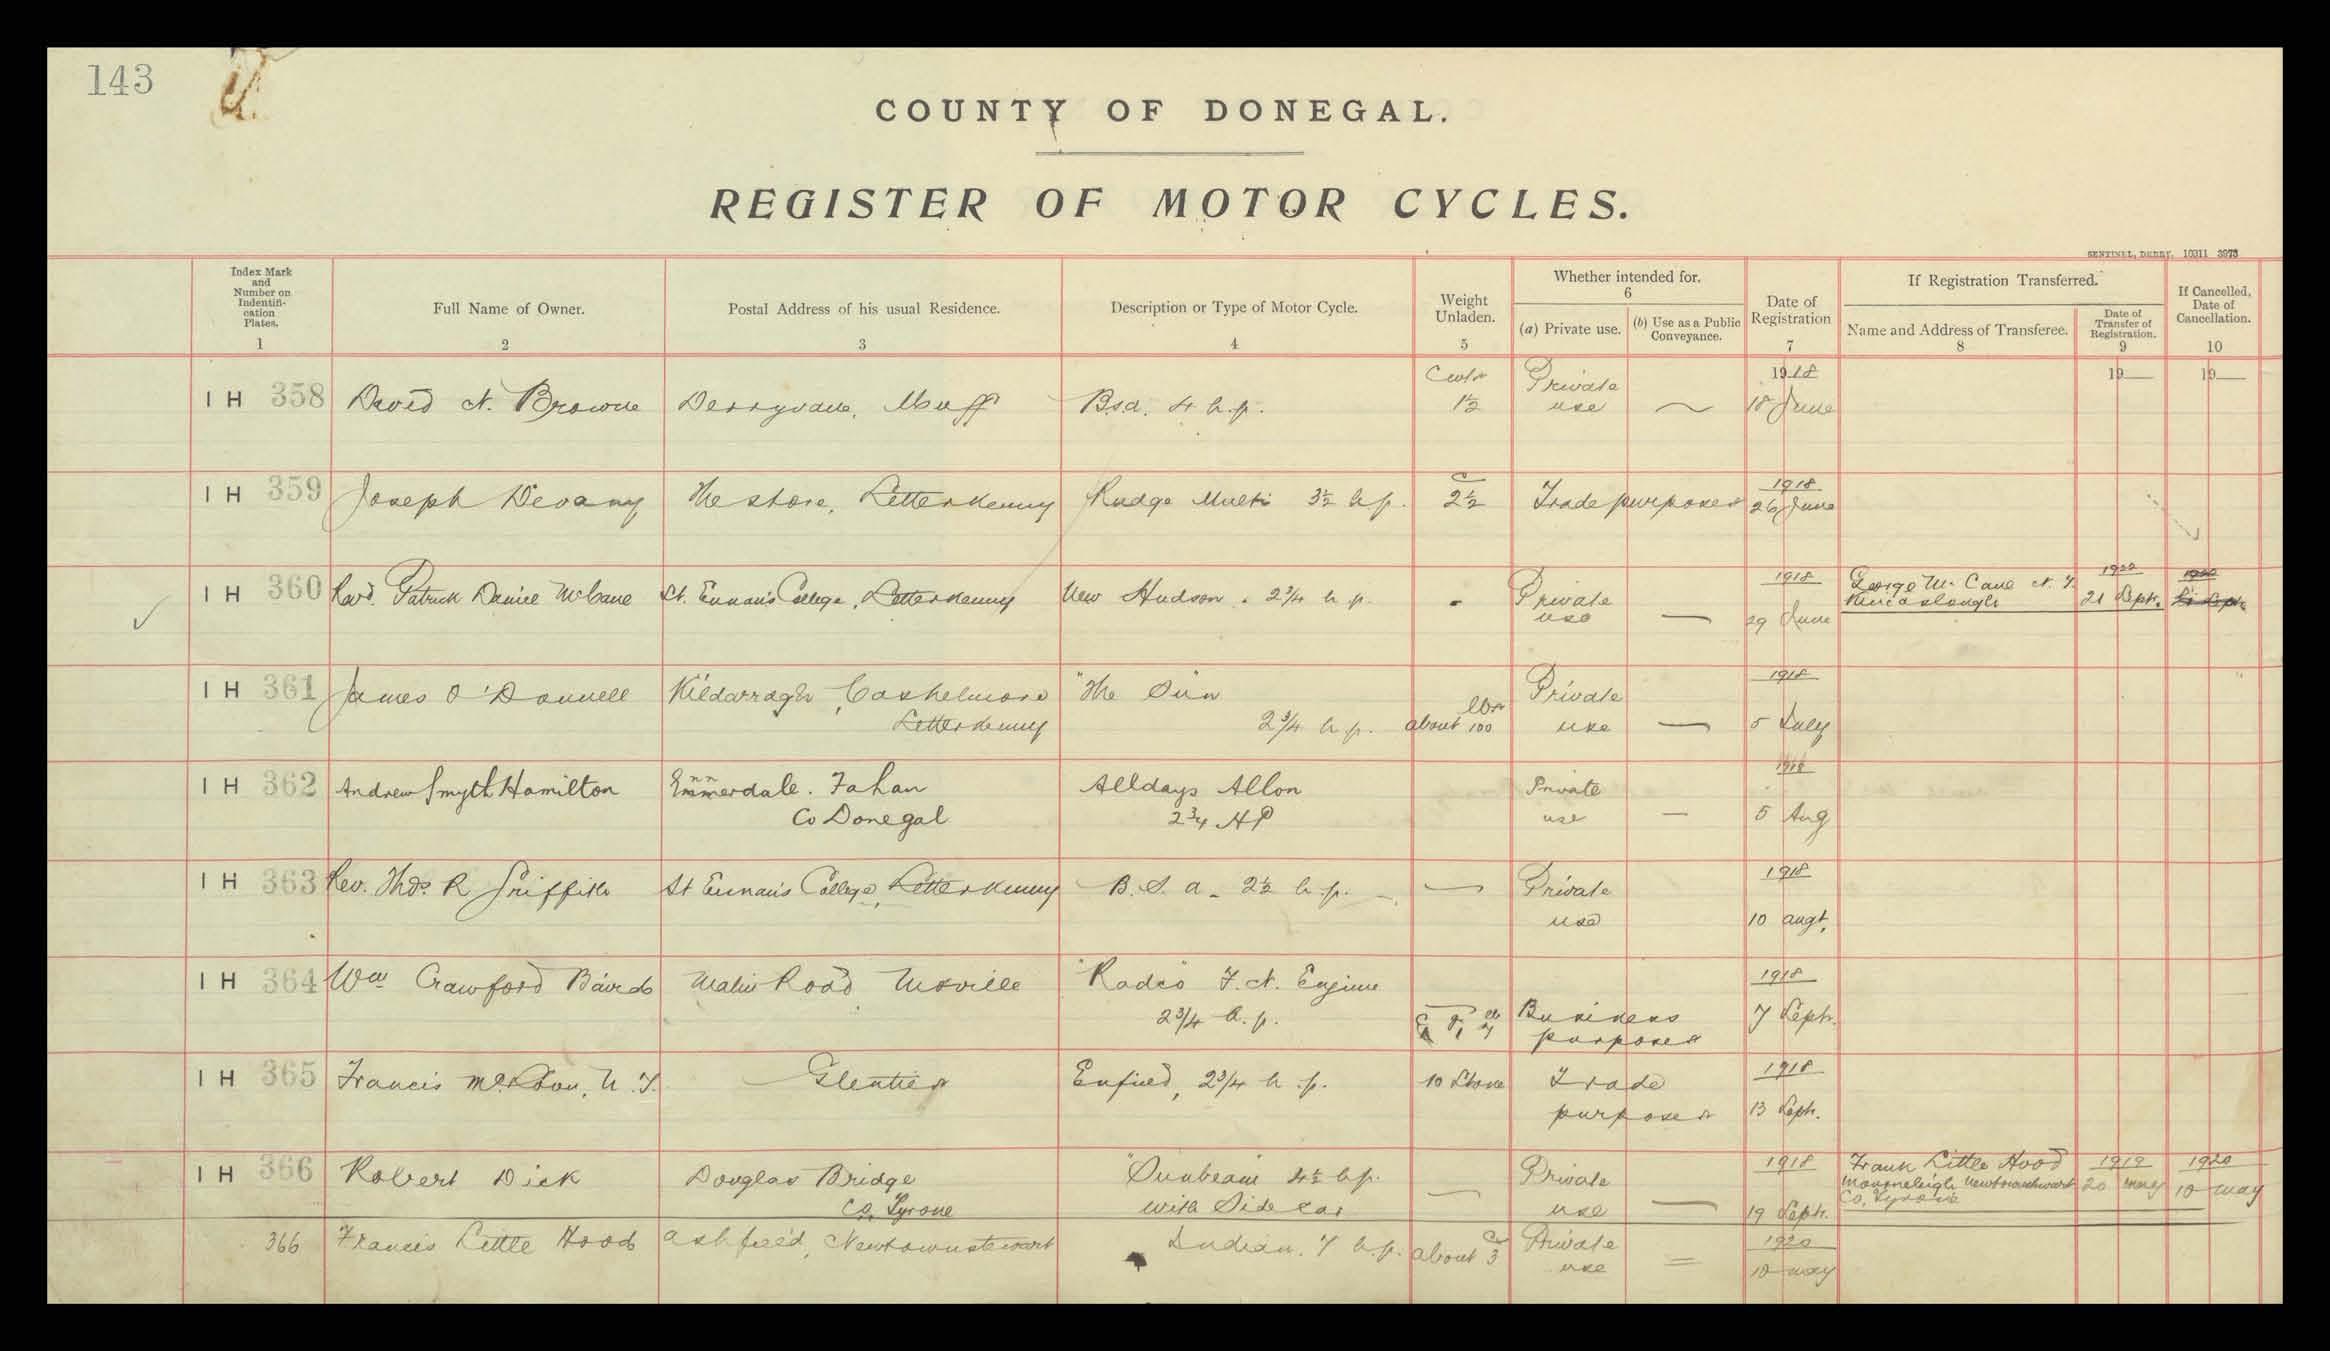 143
COUNTY OF DONEGAL.
REGISTER OF MOTOR CYCLES.
SENTINEL, DERRY, 10311 3973
Index Mark and Number on Indentifi-cation Plates. 1
Full Name of Owner. 2
Postal Address of his usual Residence. 3
Description or Type of Motor Cycle. 4
Weight Unladen. 5
Whether intended for. 6
(a) Private use. (b) Use as a Public Conveyance.
Date of Registration 7
If Registration Transferred.
Name and Address of Transferee. 8
Date of Transfer of Registration. 9
If Cancelled, Date of Cancellation. 10
Cwts Private 1918 19 19
IH 358 David N. Browne Derryvane, Muff Bsa. 4 h.p. 1½ use 18 June
1918
IH 359 Joseph Devany The store, Letterkenny Rudge Multi 3½ h.p. 2½ Trade purposes 26 June
1918 George Mc Cane N.T. 1920 1920
IH 360 Revd. Patrick Daniel McCane St. Eunan's College, Letterkenny New Hudson. 2¾ h.p. Private Kincaslough 21 Septr. 21 Septr.
use 29 June
1918
IH 361 James O'Donnell Kildarragh, Cashelmore "The Sun Private
Letterkenny 2¾ h.p. about 100 lbs use 5 July
1918
IH 362 Andrew Smyth Hamilton Emmerdale. Fahan Alldays Allon Private
nn
Co Donegal 2¾ HP use 5 Aug
1918
IH 363 Rev. Thos. R Griffith St Eunan's College, Letterkenny B.S.A. 2½ h.p. Private
use 10 Augt.
1918
IH 364 Wm Crawford Baird Malin Road Moville "Radco" F.N. Engine
2¾ h.p. Business 7 Septr.
purposes
1918
IH 365 Francis N.T. Glenties Enfield, 2¾ h.p. 10 Stone Trade
purposes 13 Septr.
1918 Frank Little Hood 1919 1920
IH 366 Robert Dick Douglas Bridge "Sunbeam 4½ h.p. Private Newtownstewart 20 May 10 May
Co. Tyrone with Side car use 19 Septr. Co. Tyrone
1920
366 Francis Little Hood Ashfield, Newtownstewart Indian. 7 h.p. about 3 c Private
use 10 May